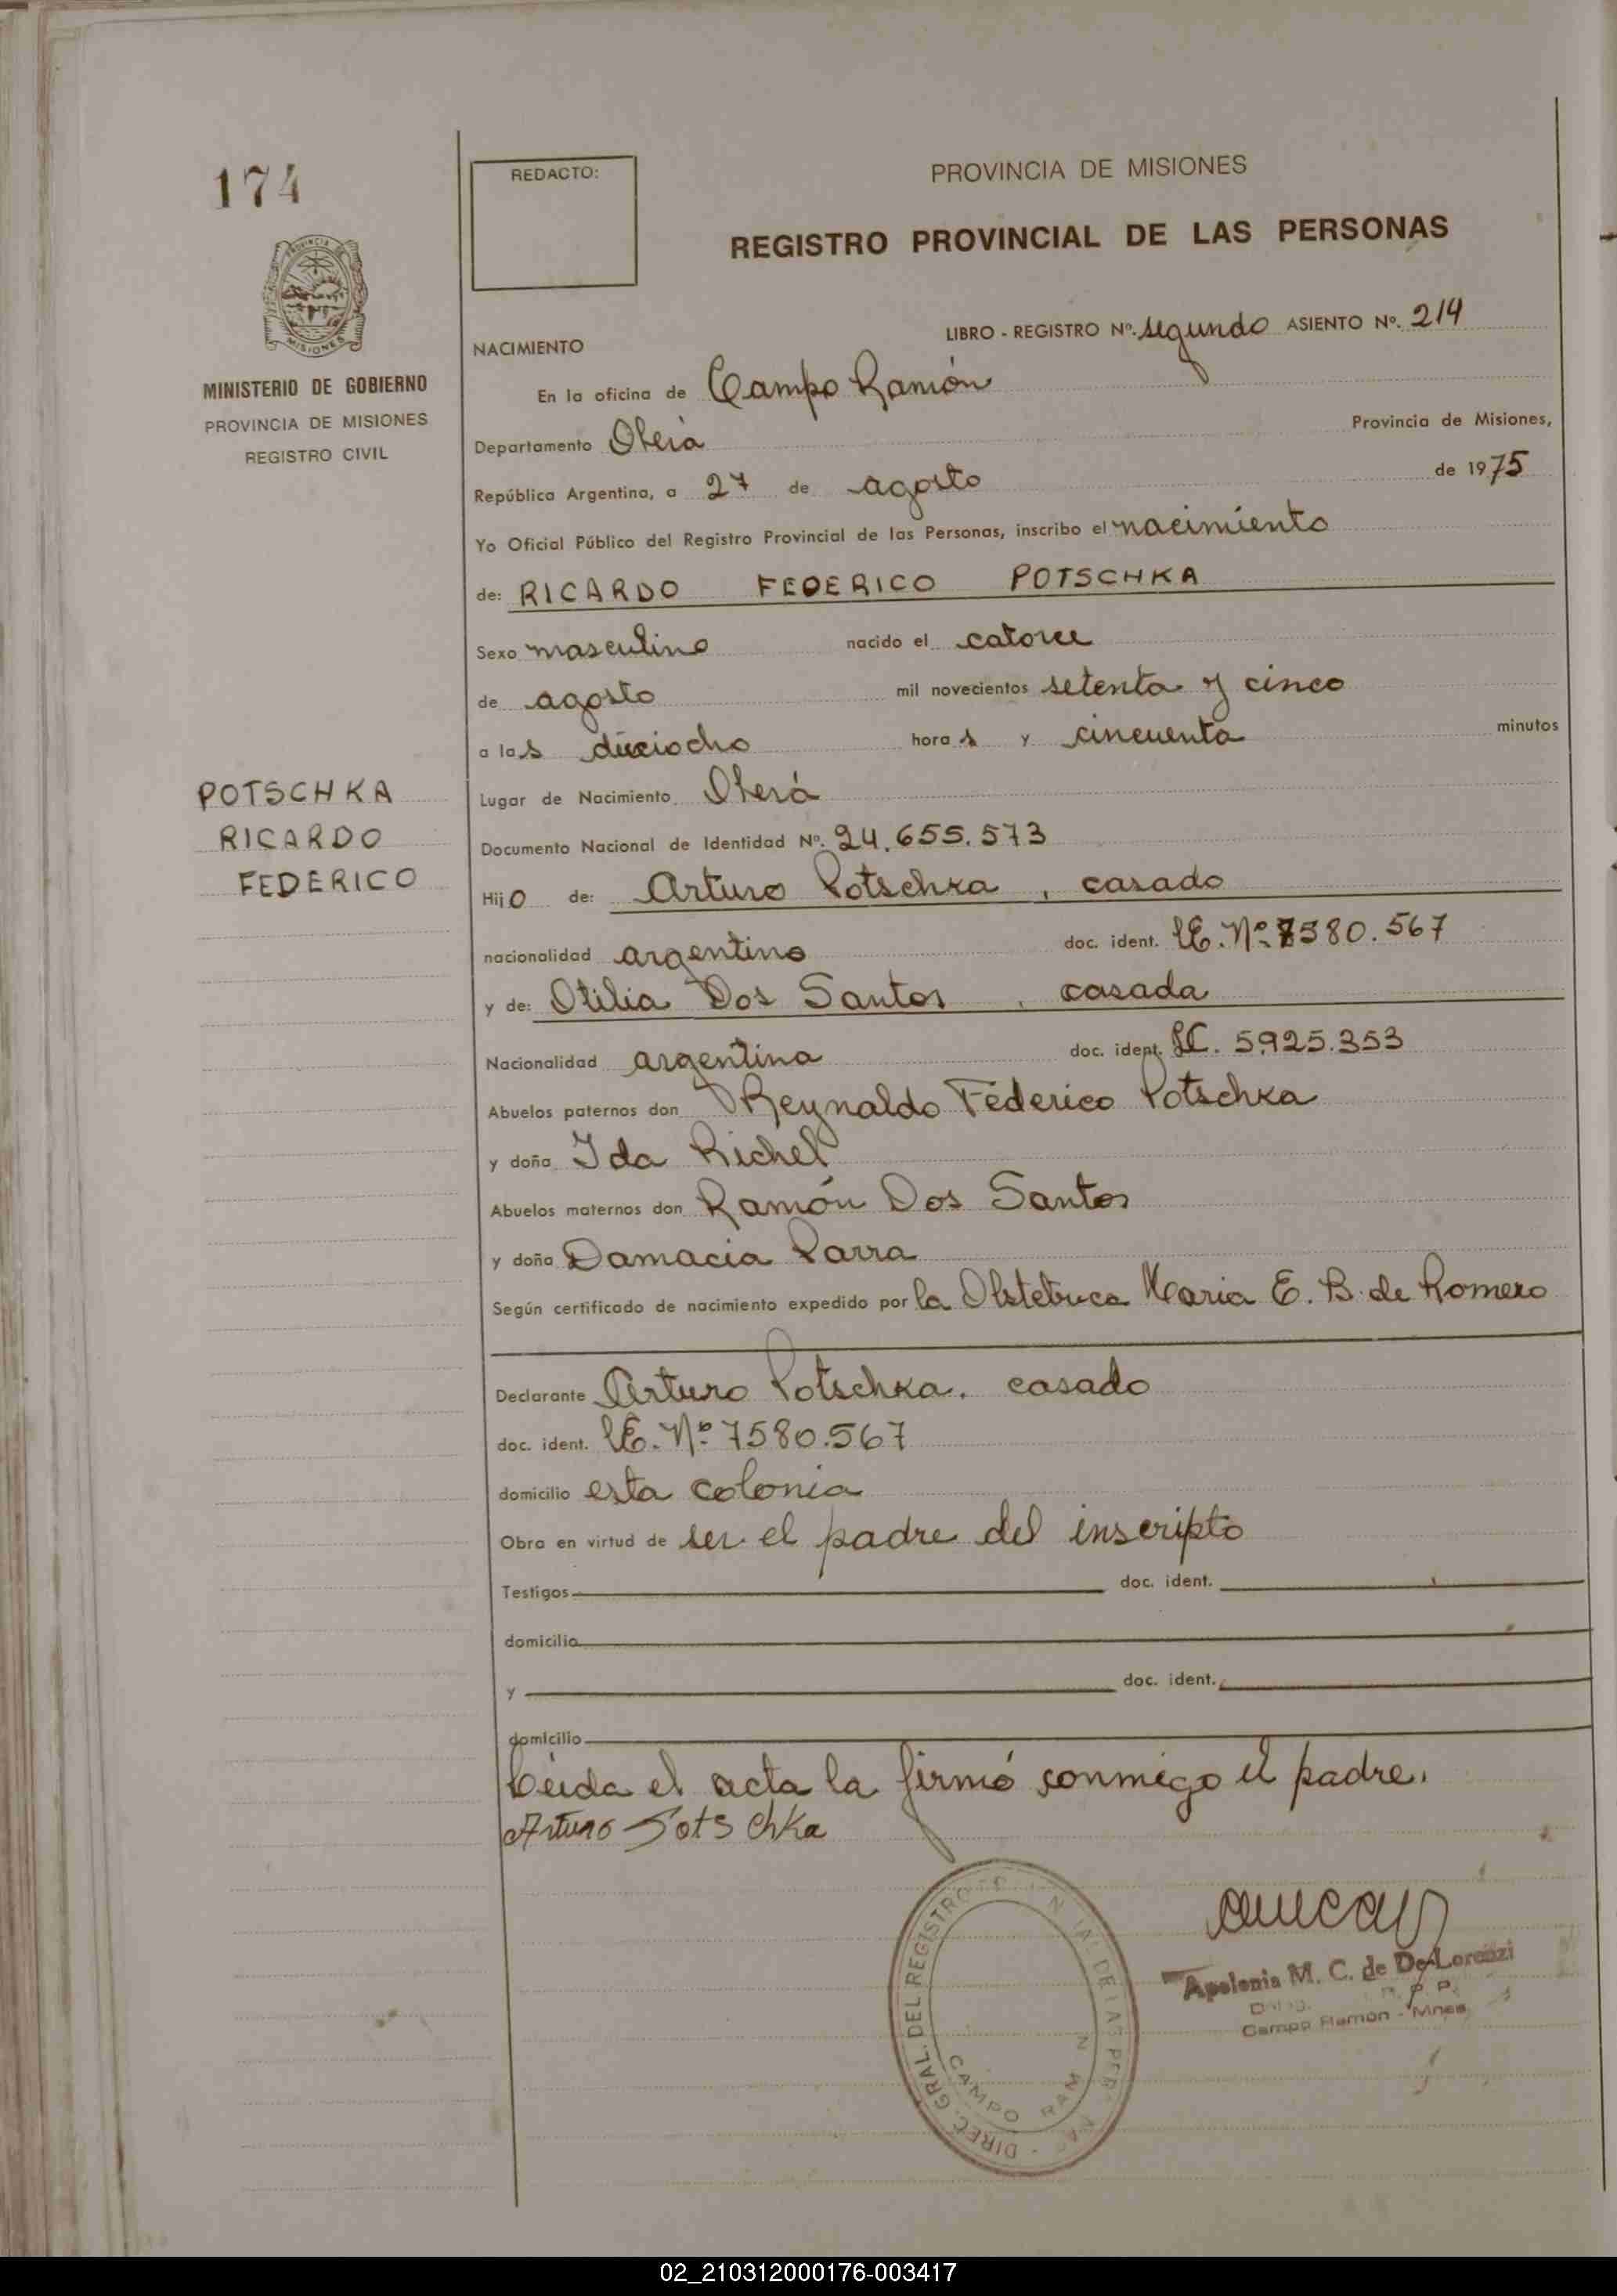 174
REDACTO:
PROVINCIA DE MISIONES
REGISTRO PROVINCIAL DE LAS PERSONAS
PROVINCIA DE
MISIONES
MINISTERIO DE GOBIERNO
PROVINCIA DE MISIONES
REGISTRO CIVIL
LIBRO - REGISTRO Nº. segundo ASIENTO Nº. 214
NACIMIENTO
En la oficina de Campo Ramón
Departamento Oberá Provincia de Misiones,
República Argentina, a 27 de agosto de 1975
Yo Oficial Público del Registro Provincial de las Personas, inscribo el nacimiento
de: RICARDO FEDERICO POTSCHKA
Sexo masculino nacido el catorce
de agosto mil novecientos setenta y cinco
a las dieciocho horas y cincuenta minutos
POTSCHKA
RICARDO
FEDERICO
Lugar de Nacimiento Oberá
Documento Nacional de Identidad Nº. 24.655.573
Hijo de: Arturo Potschka, casado
nacionalidad argentino doc. ident. LE. Nº 7580.567
y de: Otilia Dos Santos, casada
Nacionalidad argentina doc. ident. LC. 5.925.353
Abuelos paternos don Reynaldo Federico Potschka
y doña Ida Richel
Abuelos maternos don Ramón Dos Santos
y doña Damacia Parra
Según certificado de nacimiento expedido por la Obstetrica Maria E. B. de Romero
Declarante Arturo Potschka, casado
doc. ident. LE. Nº 7580.567
domicilio esta colonia
Obra en virtud de ser el padre del inscripto
Testigos doc. ident.
domicilio
y doc. ident.
domicilio
Leída el acta la firmó conmigo el padre.
Arturo Potschka
DIREC. GRAL. DEL REGISTRO DE LAS
CAMPO RAMON
Apolonia M. C. de De Lorenzi
R. P. P.
Campo Ramón - Mnes
02_210312000176-003417